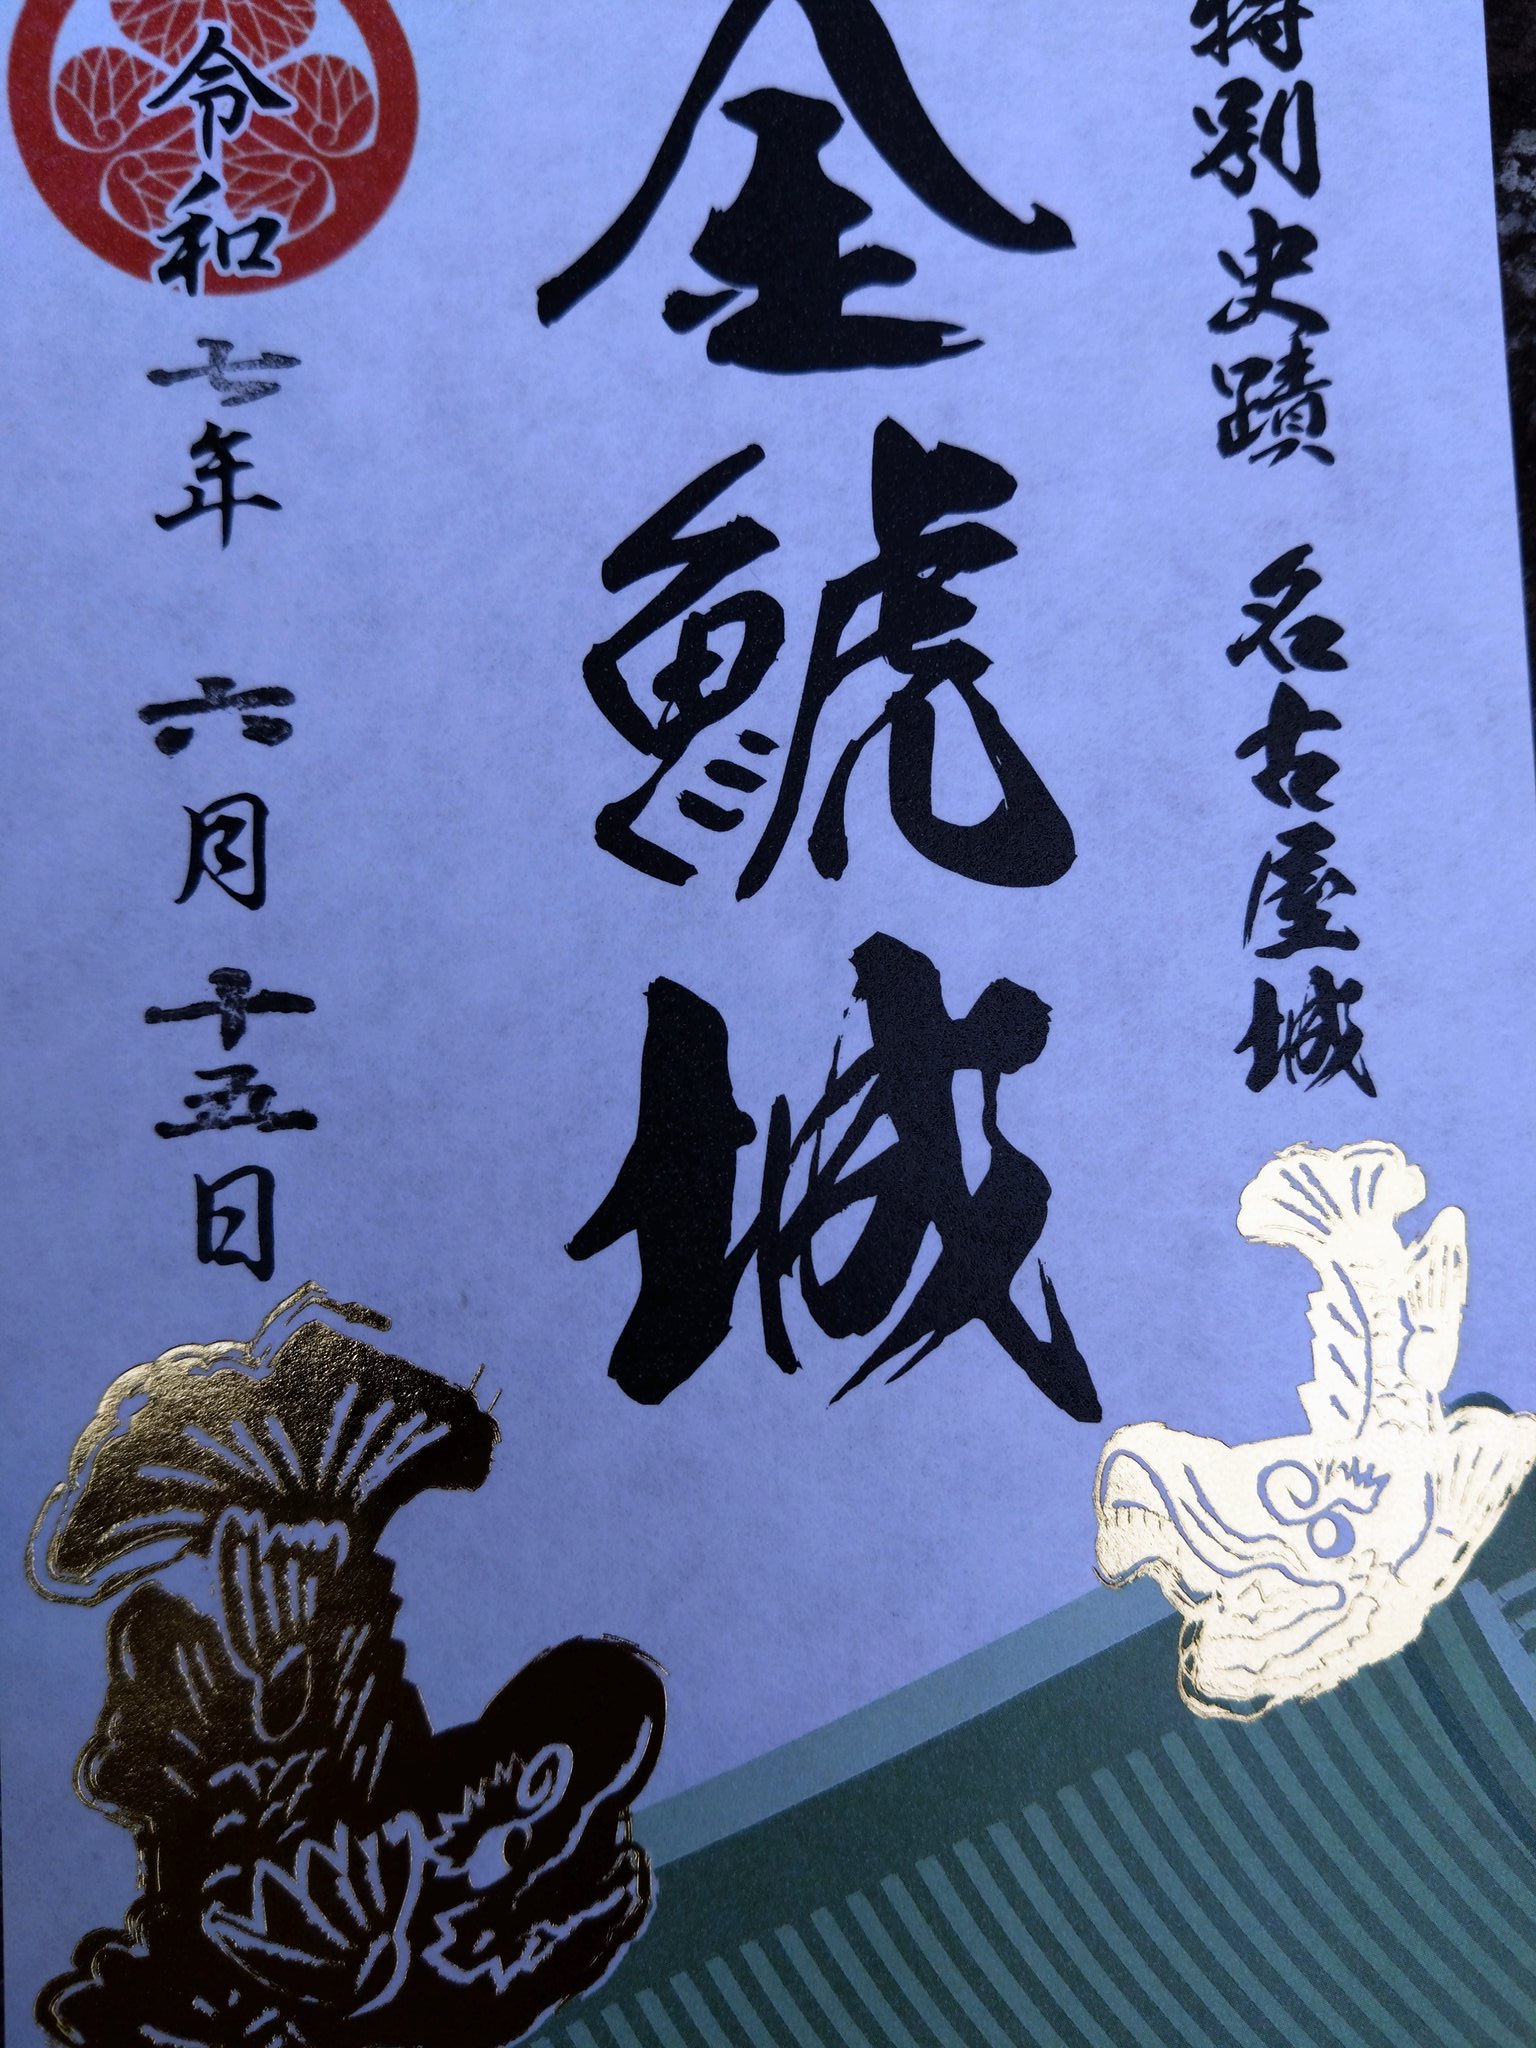 特別史蹟 名古屋城
金鯱城
令和七年 六月 十五日